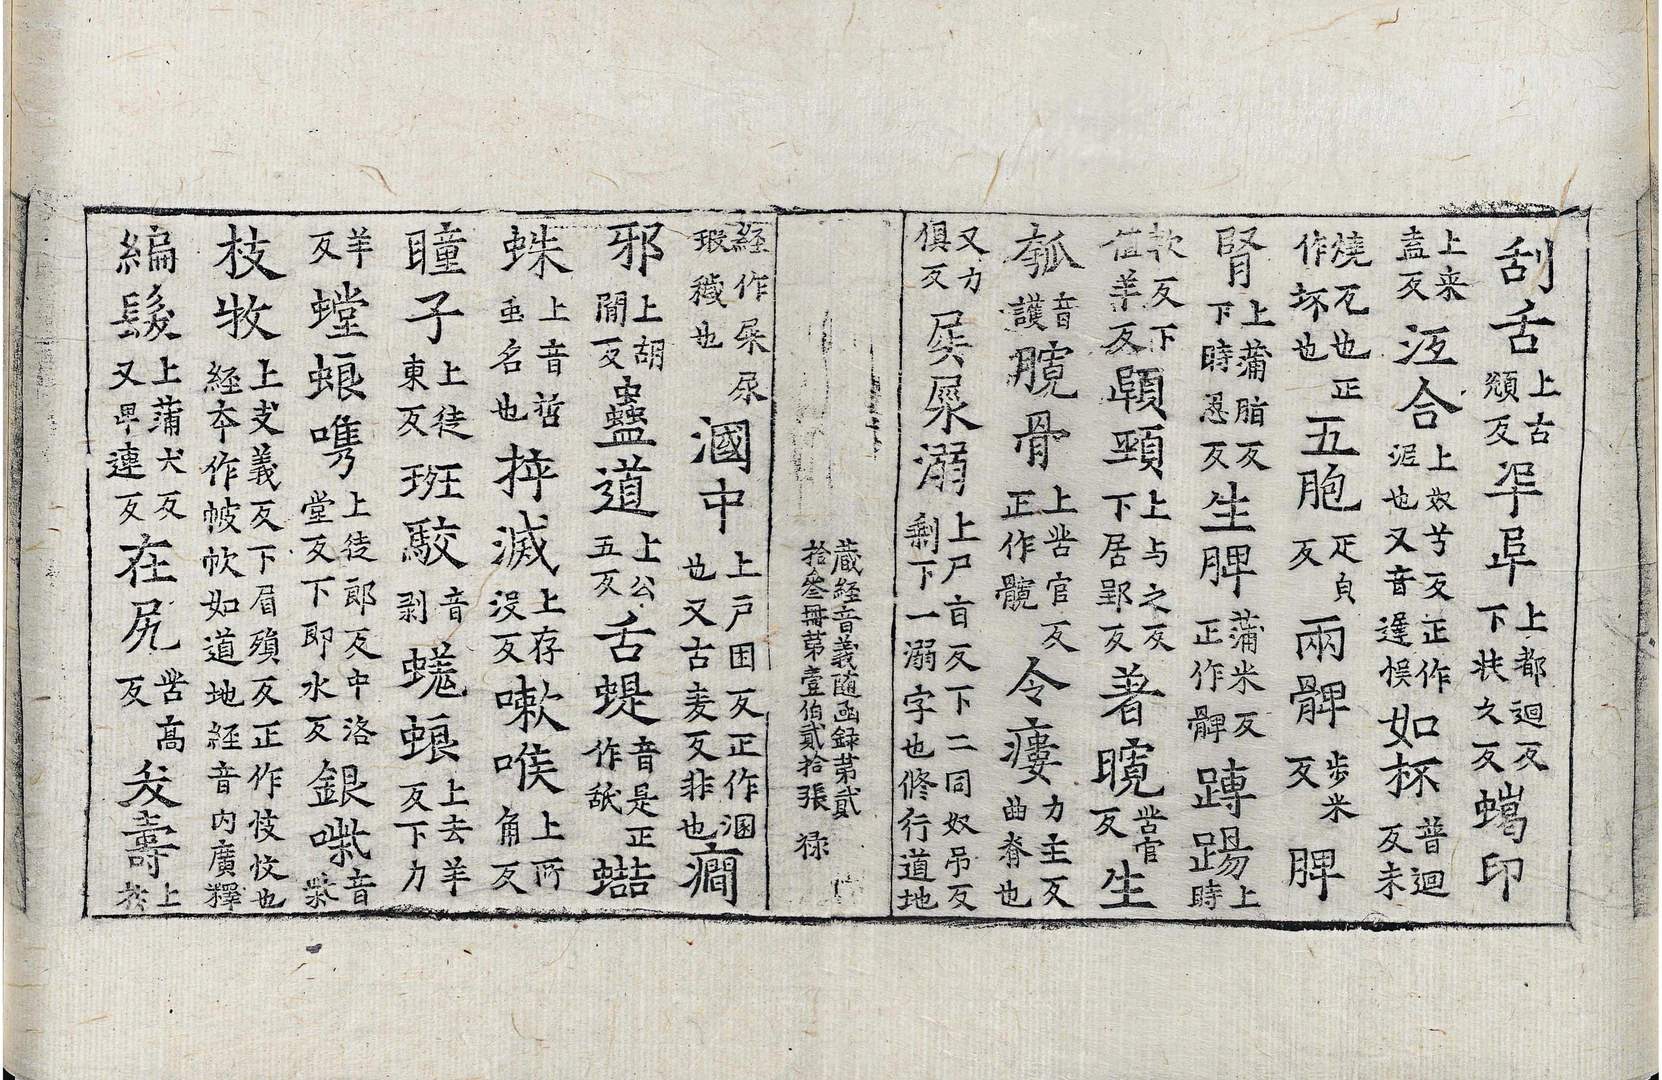 刮舌上古頽反𠂤阜上都迴反下狀久反蠾印
上来盍反沍合上奴兮反正作泥也又音遲悮如杯普迴反未
燒瓦也正作坏也五胞疋皃反兩髀步米反脾
腎上蒲脂反下時忍反生脾蒲米反正作髀蹲踢上時
軟反下值羊反頤頸上与之反下居郢反著臗苦官反生
瓠音護臗骨上苦官反正作髖令瘻力主反曲脊也
又力俱反屎屎溺上尸旨反下二同奴吊反剩下一溺字也修行道地
藏経音義随函録第貳拾叁冊第壹伯貳拾張 禄
経作屎尿㻛穢也溷中上戸困反正作溷也又古麦反非也癎
邪上胡間反蠱道上公五反舌蝭音是正作舐蛣
蛛上音哲䖝名也捽滅上存没反嗽喉上所角反
瞳子上徒東反班駮音剥蜣蜋上去羊反下力
羊反螳蜋嘊上徒郎反中洛堂反下即水反銀㗜音柴
枝牧上支義反下眉殞反正作忮忟也経本作帔帙如道地経音内廣釋
編髮上蒲犬反又卑連反在尻苦高反㚆壽上